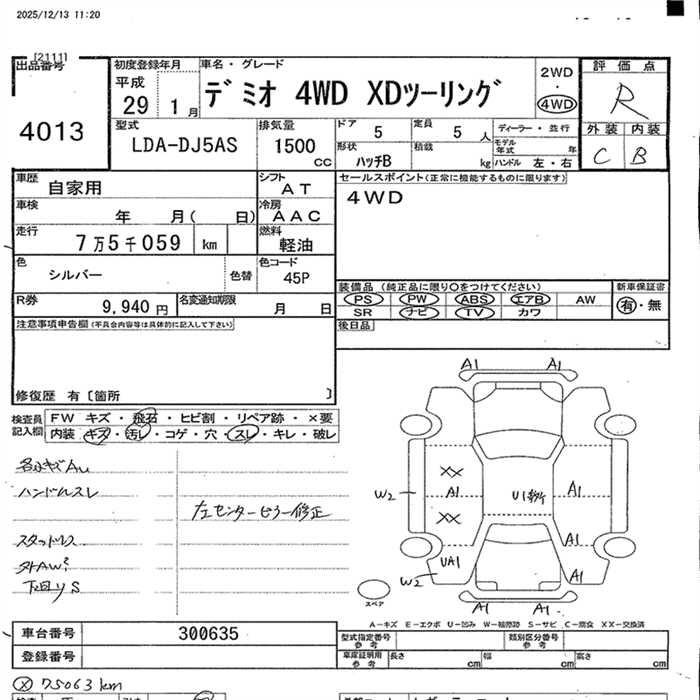 2025/12/13 11:20
[2111]
出品番号
4013
初度登録年月
平成
29 1月
車名・グレード
デミオ 4WD XDツーリング
2WD
・
4WD
評価点
R
外装 内装
C B
型式
LDA-DJ5AS
排気量
1500
cc
ドア 5
定員 5 人
形状 ハッチB
積載 kg
ディーラー・並行
モデル年式 年
ハンドル 左・右
車歴 自家用
シフト AT
車検 年 月( 日)
冷房 AAC
走行 7万5千059 km
燃料 軽油
色 シルバー
色替
色コード 45P
R券 9,940円
名変通知期限 月 日
セールスポイント(正常に機能するものに限ります)
4WD
装備品 (純正品に限り〇をつけてください)
PS PW ABS エアB AW
SR ナビ TV カワ
新車保証書
有・無
後日品
注意事項申告欄(不具合内容等は具体的に記入して下さい)
修復歴 有〔箇所 〕
検査員
記入欄
FW キズ・飛石・ヒビ割・リペア跡・×要
内装・キズ・汚レ・コゲ・穴・スレ・キレ・破レ
ハンドルスレ
左センターピラー修正
スタッドレス
下回りS
A1 A1
XX
W2 A1 A1
XX
A1
UA1 A1
W2
A1 A1
スペア
A-キズ E-エクボ U-凹み W-補修跡 S-サビ C-腐食 XX-交換済
車台番号 300635
登録番号
型式指定番号
参考
類別区分番号
参考
車庫証明用
参考
長さ cm 幅 cm 高さ cm
Ⓧ 75063km